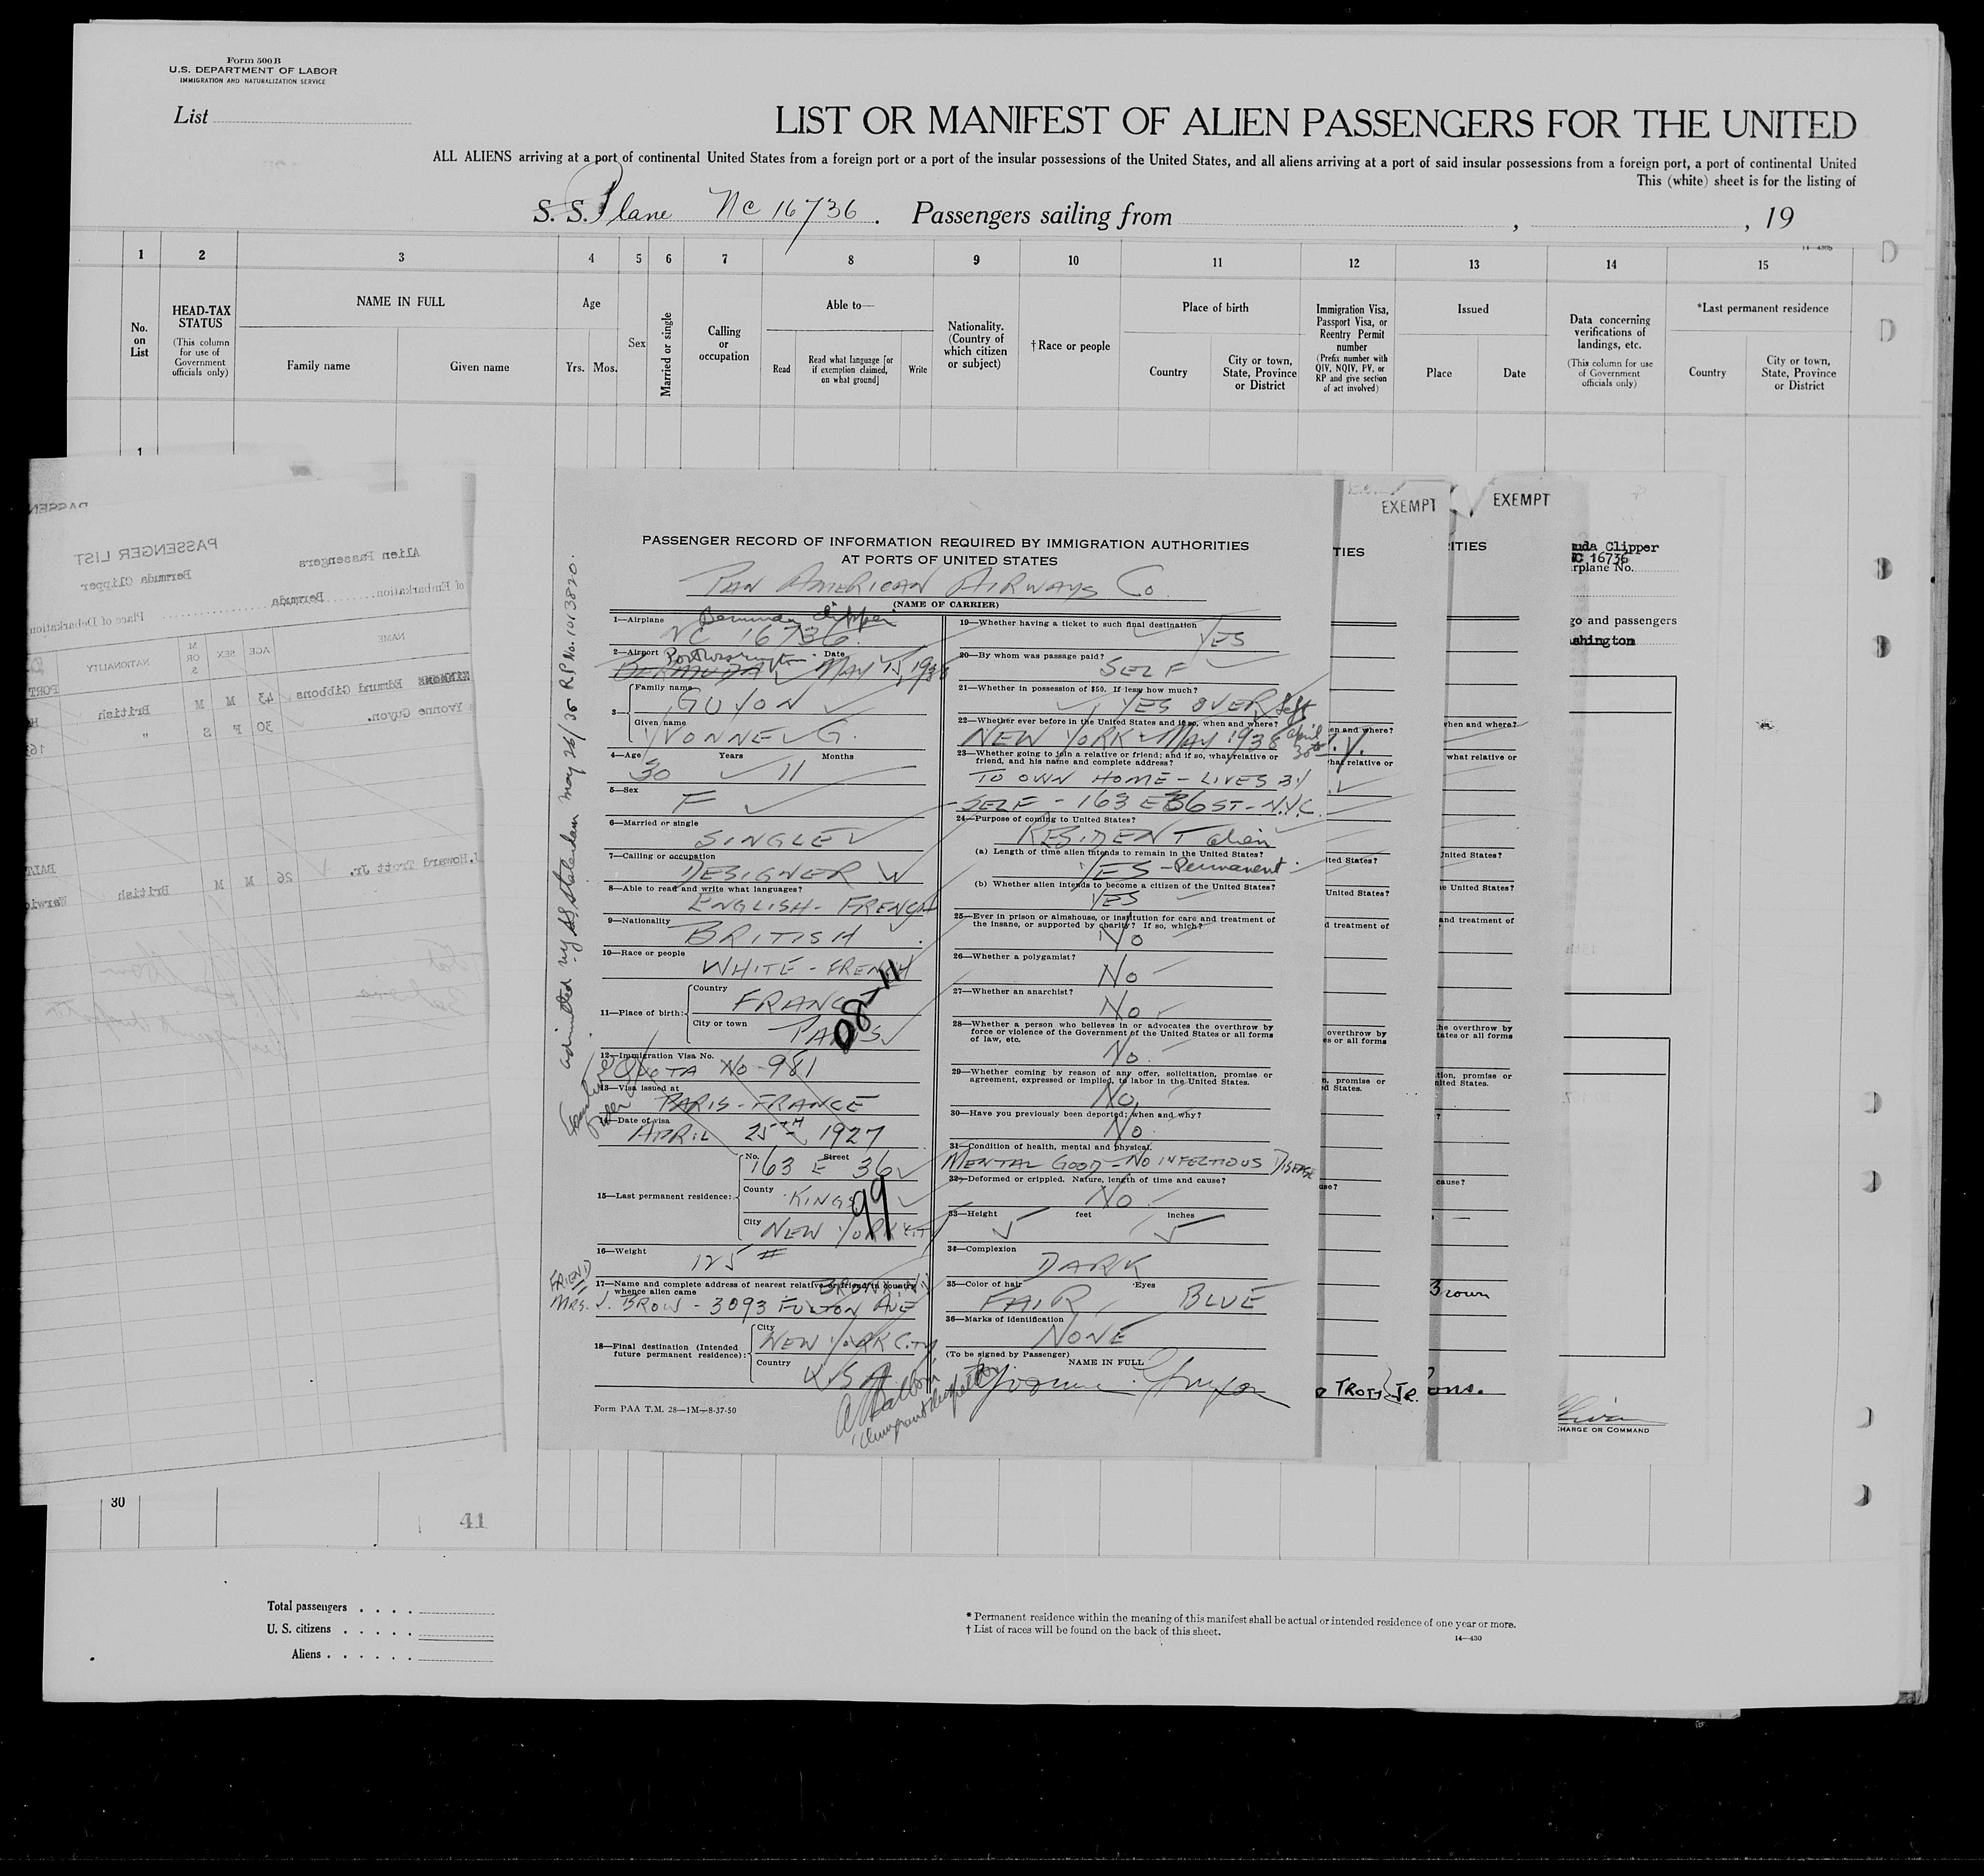 Form 500 B
U.S. DEPARTMENT OF LABOR
IMMIGRATION AND NATURALIZATION SERVICE
List
LIST OR MANIFEST OF ALIEN PASSENGERS FOR THE UNITED
ALL ALIENS arriving at a port of continental United States from a foreign port or a port of the insular possessions of the United States, and all aliens arriving at a port of said insular possessions from a foreign port, a port of continental United
This (white) sheet is for the listing of
S. S. Plane NC 16736. Passengers sailing from , , 19
1 2 3 4 5 6 7 8 9 10 11 12 13 14 15
No. on List
HEAD-TAX STATUS
(This column for use of Government officials only)
NAME IN FULL
Family name
Given name
Age
Yrs. Mos.
Sex
Married or single
Calling or occupation
Able to—
Read
Read what language [or if exemption claimed, on what ground]
Write
Nationality. (Country of which citizen or subject)
†Race or people
Place of birth
Country
City or town, State, Province or District
Immigration Visa, Passport Visa, or Reentry Permit number
(Prefix number with QIV, NQIV, PV, or RP and give section of act involved)
Issued
Place
Date
Data concerning verifications of landings, etc.
(This column for use of Government officials only)
*Last permanent residence
Country
City or town, State, Province or District
1
PASSENGER LIST
Alien Passengers
Bermuda Clipper
of Embarkation Bermuda
Place of Debarkation
NAME
AGE
SEX
M OR S
NATIONALITY
Edmund Gibbons 43 M M British
Yvonne Guyon. 30 F S "
J. Howard Trott Jr. 26 M M British Warwi
PASSENGER RECORD OF INFORMATION REQUIRED BY IMMIGRATION AUTHORITIES
AT PORTS OF UNITED STATES
PAN AMERICAN AIRWAYS Co.
(NAME OF CARRIER)
1—Airplane Bermuda Clipper
NC 16736.
2—Airport Port Washington Date
BERMUDA MAY 15, 1938
3— Family name
GUYON
Given name
YVONNE G.
4—Age Years Months
30 11
5—Sex
F
6—Married or single
SINGLE
7—Calling or occupation
DESIGNER
8—Able to read and write what languages?
ENGLISH - FRENCH
9—Nationality
BRITISH
10—Race or people
WHITE - FRENCH
11—Place of birth: Country
FRANCE
City or town
PARIS
08-11
12—Immigration Visa No.
QUOTA No - 981
13—Visa issued at
PARIS - FRANCE
14—Date of visa
APRIL 25TH 1927
15—Last permanent residence: No. Street
163 E 36
County
KINGS
City
NEW YORK CITY
99
16—Weight
125 #
17—Name and complete address of nearest relative or friend in country whence alien came
FRIEND
MRS. J. BROW - 3093 FULTON AVE
BROOKLYN
18—Final destination (Intended future permanent residence): City
NEW YORK CITY
Country
USA
Immigrant Inspector
Form PAA T.M. 28—1M—8-37-50
admitted NY SS Statendam may 26/35 R.P. No. 1013820.
19—Whether having a ticket to such final destination
YES
20—By whom was passage paid?
SELF
21—Whether in possession of $50. If less how much?
YES OVER
22—Whether ever before in the United States and if so, when and where?
NEW YORK - MAY 1938
Left April 30th
23—Whether going to join a relative or friend; and if so, what relative or friend, and his name and complete address?
TO OWN HOME - LIVES BY
SELF - 163 E 36 ST - N.Y.C.
24—Purpose of coming to United States?
RESIDENT alien
(a) Length of time alien intends to remain in the United States?
YES - Permanent
(b) Whether alien intends to become a citizen of the United States?
YES
25—Ever in prison or almshouse, or institution for care and treatment of the insane, or supported by charity? If so, which?
No
26—Whether a polygamist?
No
27—Whether an anarchist?
No
28—Whether a person who believes in or advocates the overthrow by force or violence of the Government of the United States or all forms of law, etc.
No.
29—Whether coming by reason of any offer, solicitation, promise or agreement, expressed or implied, to labor in the United States.
No.
30—Have you previously been deported; when and why?
No
31—Condition of health, mental and physical.
MENTAL GOOD - NO INFECTIOUS DISEASE
32—Deformed or crippled. Nature, length of time and cause?
No
33—Height feet inches
5 5
34—Complexion
DARK
35—Color of hair Eyes
FAIR, BLUE
36—Marks of identification
NONE
(To be signed by Passenger) NAME IN FULL
Yvonne Guyon
EXEMPT
EXEMPT
TIES
ITIES
en and where?
hen and where?
hat relative or
what relative or
ited States?
United States?
United States?
e United States?
d treatment of
and treatment of
overthrow by
es or all forms
he overthrow by
tates or all forms
n, promise or
ed States.
tion, promise or
nited States.
use?
cause?
Brown
TROTT JR.
ons.
muda Clipper
NC 16736
rplane No.
go and passengers
shington
CHARGE OR COMMAND
30
41
Total passengers . . . .
U. S. citizens . . . . .
Aliens . . . . . .
* Permanent residence within the meaning of this manifest shall be actual or intended residence of one year or more.
† List of races will be found on the back of this sheet.
14—430